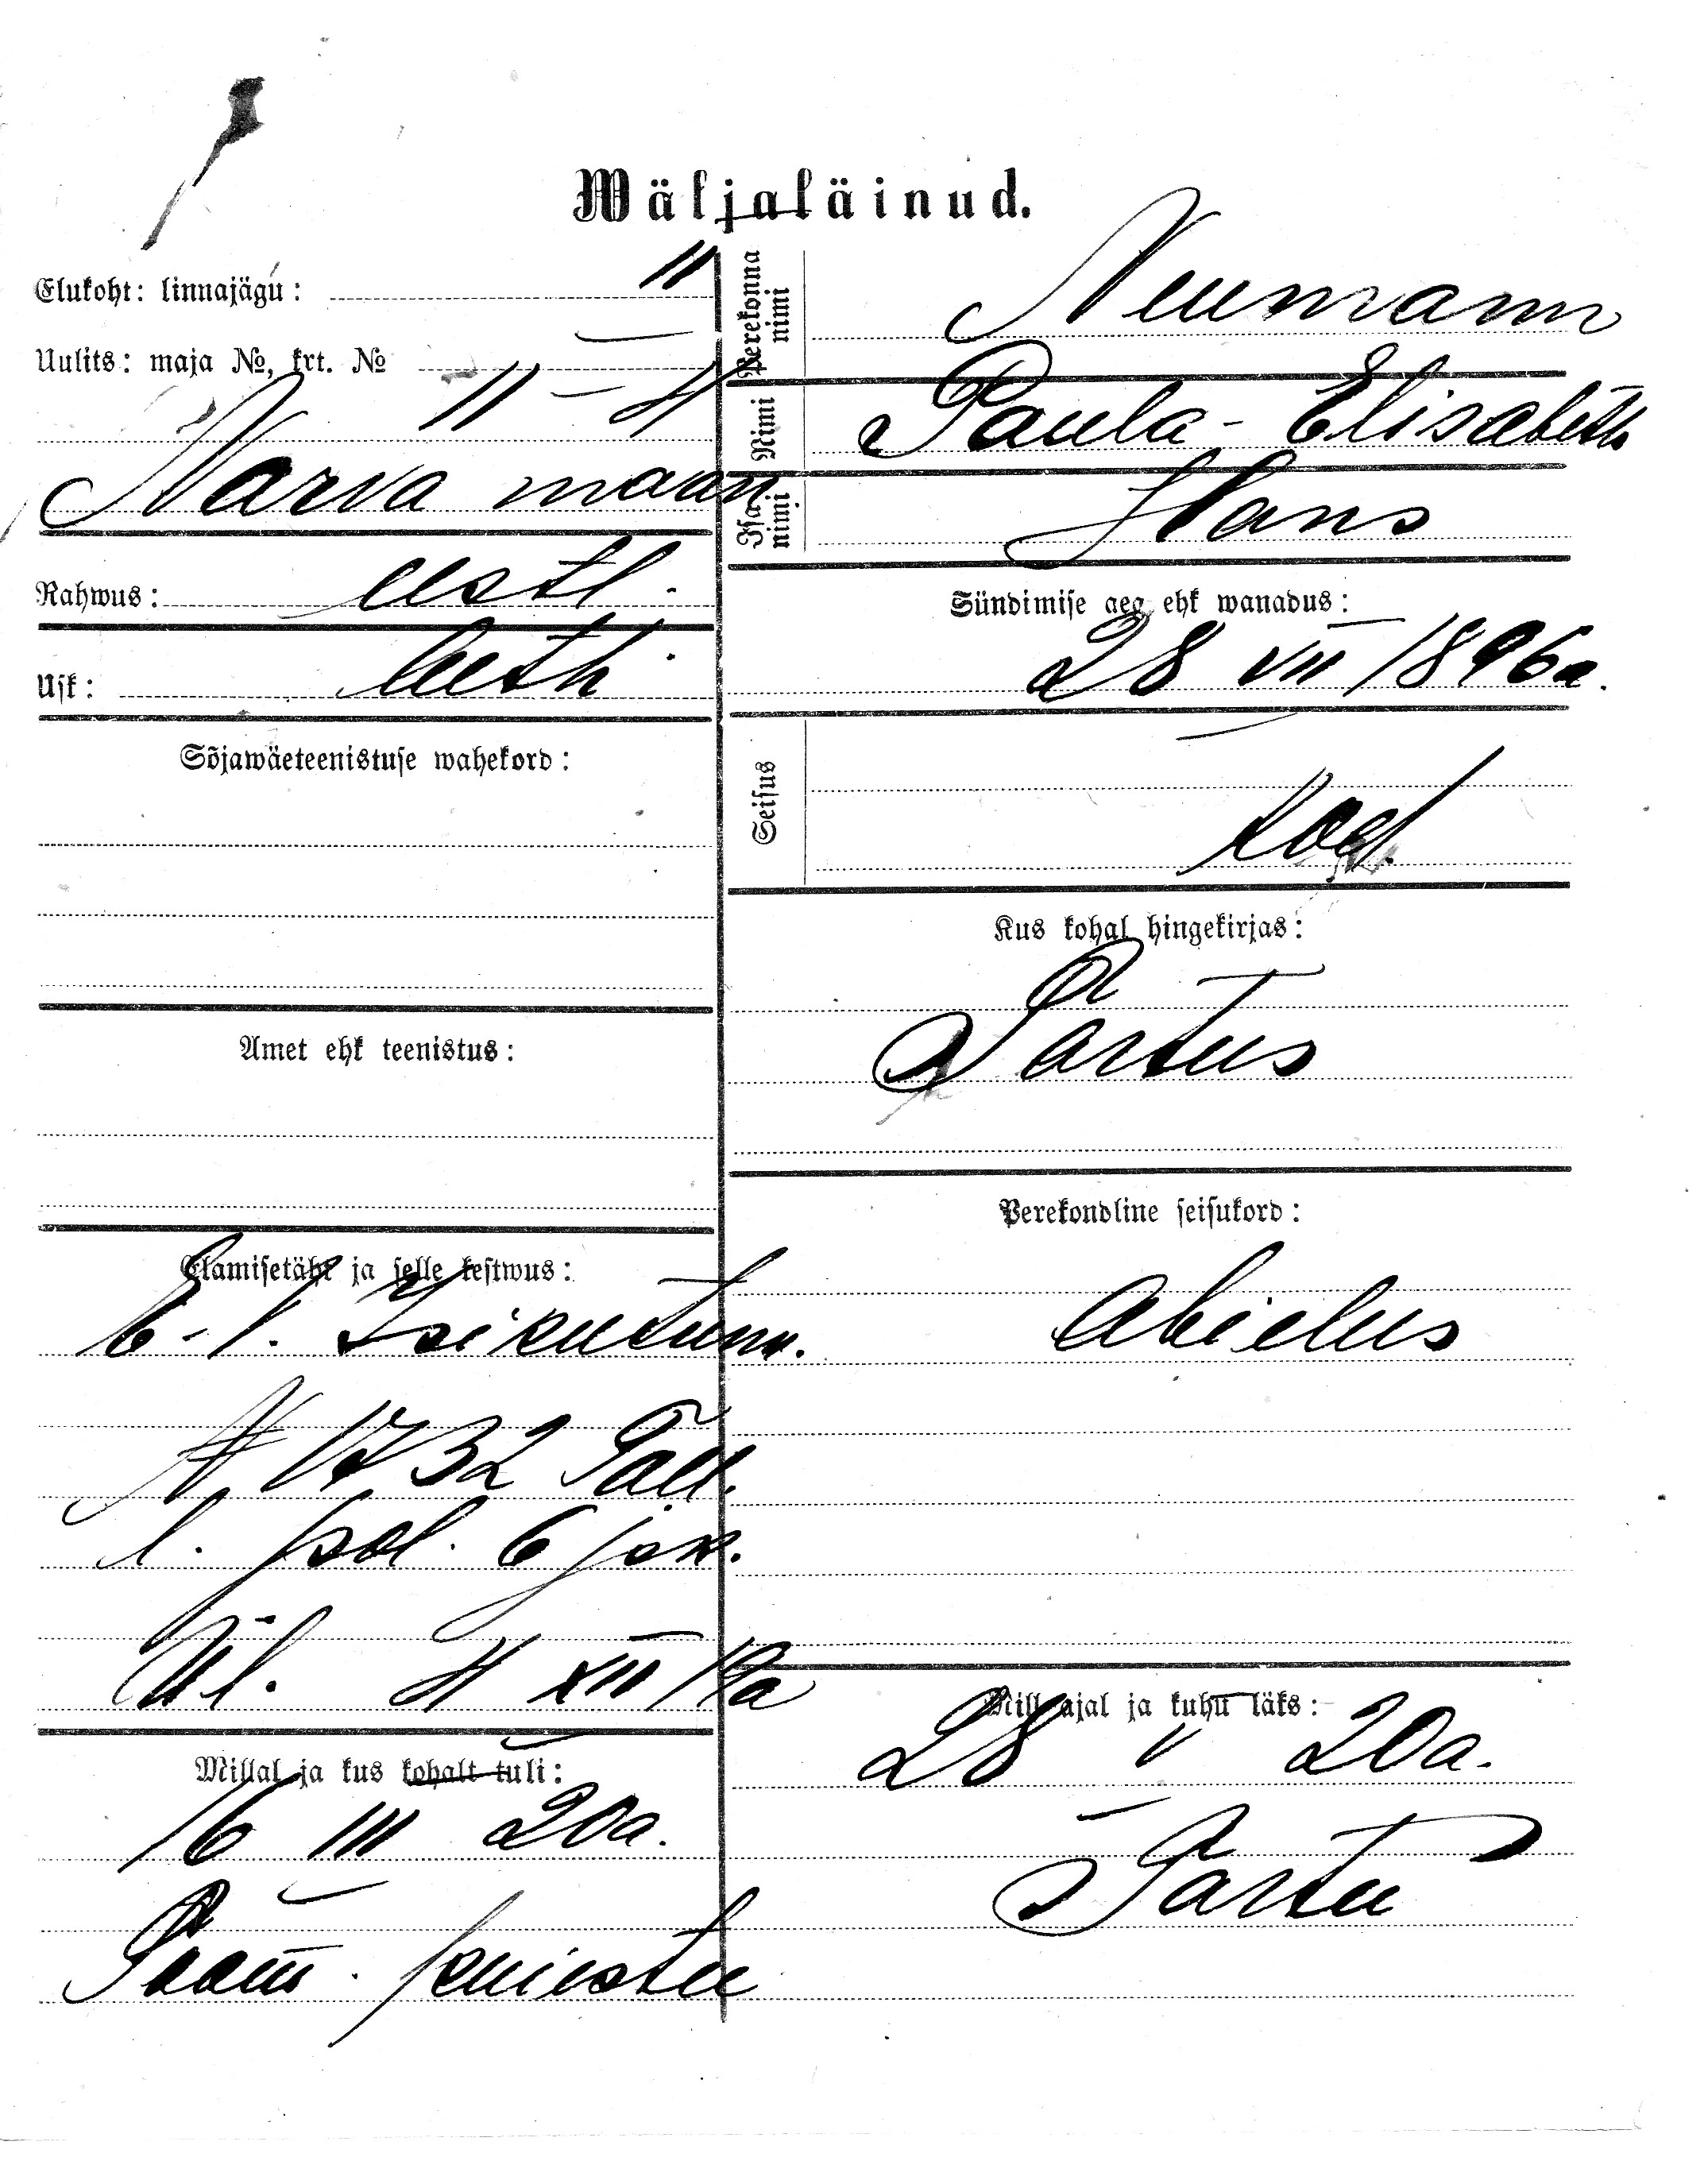 Wäljaläinud.
Elukoht: linnajägu: II
Uulits: maja №, krt. №
11 - 4
Narva maan
Rahwus: eestl.
Usk: luth.
Sõjawäeteenistuse wahekord:
Amet ehk teenistus:
Elamisetäht ja selle kestwus:
E-l. Isikutunn.
№ 1732 Tall.
l. pol. 6 jsk.
Ül. 4 XII 19a
Millal ja kus kohalt tuli:
16 III 20a.
puiestee
Perekonna nimi
Neumann
Nimi
Paula-Elisabeth
Isa nimi
Hans
Sündimise aeg ehk wanadus:
28 VII 1896a.
Seisus
kod.
Kus kohal hingekirjas:
Tartus
Perekondline seisukord:
Abielus
Mill ajal ja kuhu läks:
28 V 20a.
Tartu